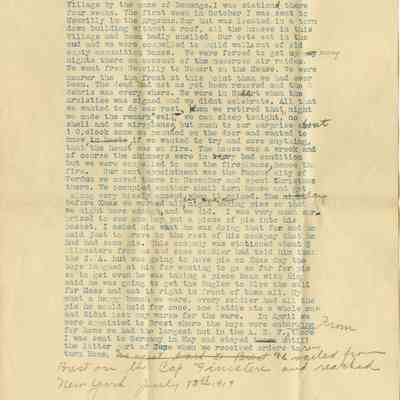 Village by the name of Demange. I was stationed there
four weeks. The first week in October I was sent to
in the Argonne. Our hut was located in a torn
down building without a roof, all the houses in this
Village had been badly shelled. Our cots set in the
mud and we were compelled to build walls out of old
empty ammunition boxes. We were forced to get up many
nights there on account of the numerous air raides.
We went from Neuvilly to on the Meuse. We were
nearer the front at this point than we had ever
been. The dead had not as yet been removed and the
debris was every where. We were in when the
armistice was signed and we didnt celebrate. All that
we wanted to do was rest. When we retired that night
we made the remark "well we can sleep tonight, no
shell and no airplanes but much to our surprise about
1 O,clock some one pounded on the door and wanted to
know if we wanted to try and save anything,
that the house was on fire. The house was a wreck and
of course the chimneys were in very bad condition
but we were compelled to use the fireplaces, hence the
fire. Our next appointment was the Famous city of
Verdun we moved there in November and spent Christmas
there. We occupied another shell torn house and got
along very nicely
before Xmas we all night making pies so that
we might have enough and we did. I was very much sur-
prized to see one boy put a piece of pie into his
pocket, I asked him what he was doing that for and he
said just to prove to the rest of his company that he
had had some pie. This company was stationed about 8
kilometers from us and some soldier had told him that
the S.A. was going to have pie on Xmas day the
boys laughed at him for wanting to go so far for pie
so to get even he was taking a piece back with him
said he was going to get the Bugler to blow the call
for Mess and eat it right in front of them all. Oh
what a happy bunch we were, every soldier had all the
pie he could hold for once, one laddie ate a whole one
and didnt last any worse for the ware. In April we
were appointed to Brest where the boys were embarking
for home we had the largest hut in the A. E. F.
I was sent to Germany in May and stayed there until
the latter part of June when we received orders to re-
turn Home, We sailed from
Brest on the Cap Finistere and reached
New York July 13th 1919